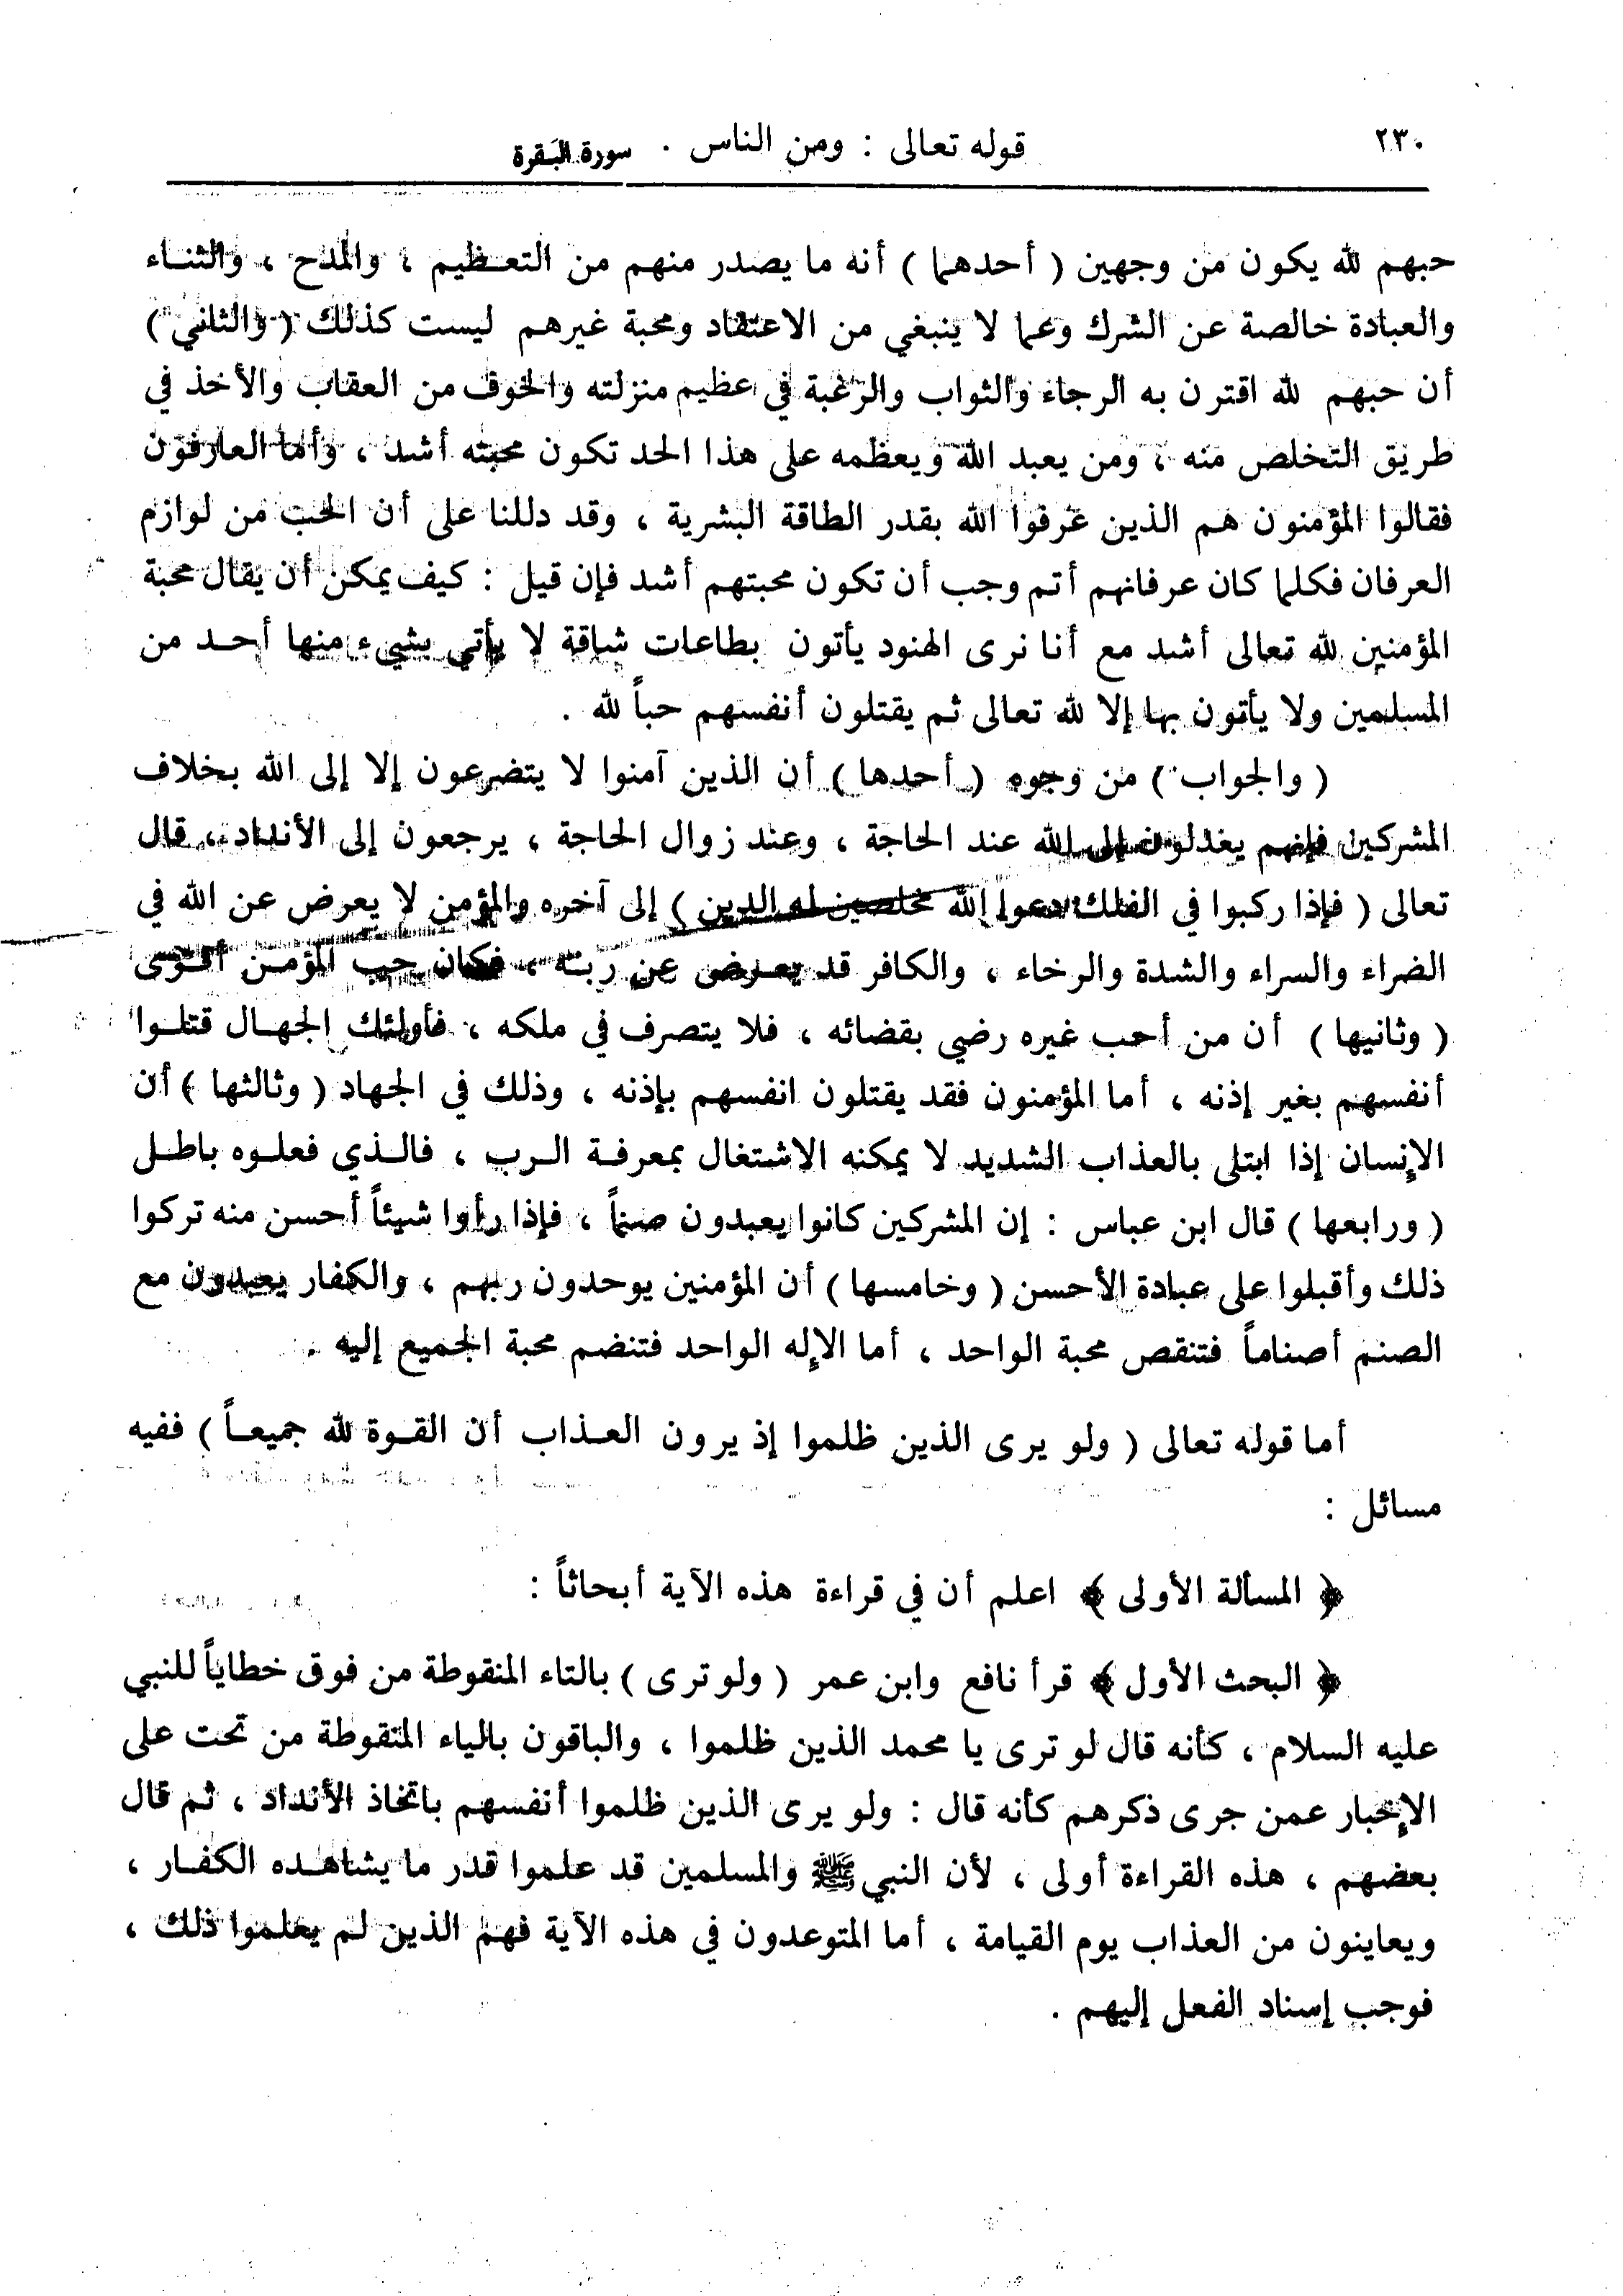 ٢٣٠ قوله تعالى : ومن الناس . سورة البقرة
حبهم لله يكون من وجهين ( أحدهما ) أنه ما يصدر منهم من التعظيم ، والمدح ، والثناء
والعبادة خالصة عن الشرك وعما لا ينبغي من الاعتقاد ومحبة غيرهم ليست كذلك ( والثاني )
أن حبهم لله اقترن به الرجاء والثواب والرغبة في عظيم منزلته والخوف من العقاب والأخذ في
طريق التخلص منه ، ومن يعبد الله ويعظمه على هذا الحد تكون محبته أشد ، وأما العارفون
فقالوا المؤمنون هم الذين عرفوا الله بقدر الطاقة البشرية ، وقد دللنا على أن الحب من لوازم
العرفان فكلما كان عرفانهم أتم وجب أن تكون محبتهم أشد فإن قيل : كيف يمكن أن يقال محبة
المؤمنين لله تعالى أشد مع أنا نرى الهنود يأتون بطاعات شاقة لا يأتي بشيء منها أحد من
المسلمين ولا يأتون بها إلا لله تعالى ثم يقتلون أنفسهم حباً لله .
( والجواب ) من وجوه ( أحدها ) أن الذين آمنوا لا يتضرعون إلا إلى الله بخلاف
المشركين فإنهم يعدلون إلى الله عند الحاجة ، وعند زوال الحاجة ، يرجعون إلى الأنداد ، قال
تعالى ( فإذا ركبوا في الفلك دعوا الله مخلصين له الدين ) إلى آخره والمؤمن لا يعرض عن الله في
الضراء والسراء والشدة والرخاء ، والكافر قد يعرض عن ربه ، فكان حب المؤمن أقوى
( وثانيها ) أن من أحب غيره رضي بقضائه ، فلا يتصرف في ملكه ، فأولئك الجهال قتلوا
أنفسهم بغير إذنه ، أما المؤمنون فقد يقتلون انفسهم بإذنه ، وذلك في الجهاد ( وثالثها ) أن
الإنسان إذا ابتلى بالعذاب الشديد لا يمكنه الاشتغال بمعرفة الرب ، فالذي فعلوه باطل
( ورابعها ) قال ابن عباس : إن المشركين كانوا يعبدون صنماً ، فإذا رأوا شيئاً أحسن منه تركوا
ذلك وأقبلوا على عبادة الأحسن ( وخامسها ) أن المؤمنين يوحدون ربهم ، والكفار يعبدون مع
الصنم أصناماً فتنقص محبة الواحد ، أما الإله الواحد فتنضم محبة الجميع إليه .
أما قوله تعالى ( ولو يرى الذين ظلموا إذ يرون العذاب أن القوة لله جميعاً ) ففيه
مسائل :
﴿ المسألة الأولى ﴾ اعلم أن في قراءة هذه الآية أبحاثاً :
﴿ البحث الأول ﴾ قرأ نافع وابن عمر ( ولو ترى ) بالتاء المنقوطة من فوق خطاياً للنبي
عليه السلام ، كأنه قال لو ترى يا محمد الذين ظلموا ، والباقون بالياء المنقوطة من تحت على
الإخبار عمن جرى ذكرهم كأنه قال : ولو يرى الذين ظلموا أنفسهم باتخاذ الأنداد ، ثم قال
بعضهم ، هذه القراءة أولى ، لأن النبي ﷺ والمسلمين قد علموا قدر ما يشاهده الكفار ،
ويعاينون من العذاب يوم القيامة ، أما المتوعدون في هذه الآية فهم الذين لم يعلموا ذلك ،
فوجب إسناد الفعل إليهم .